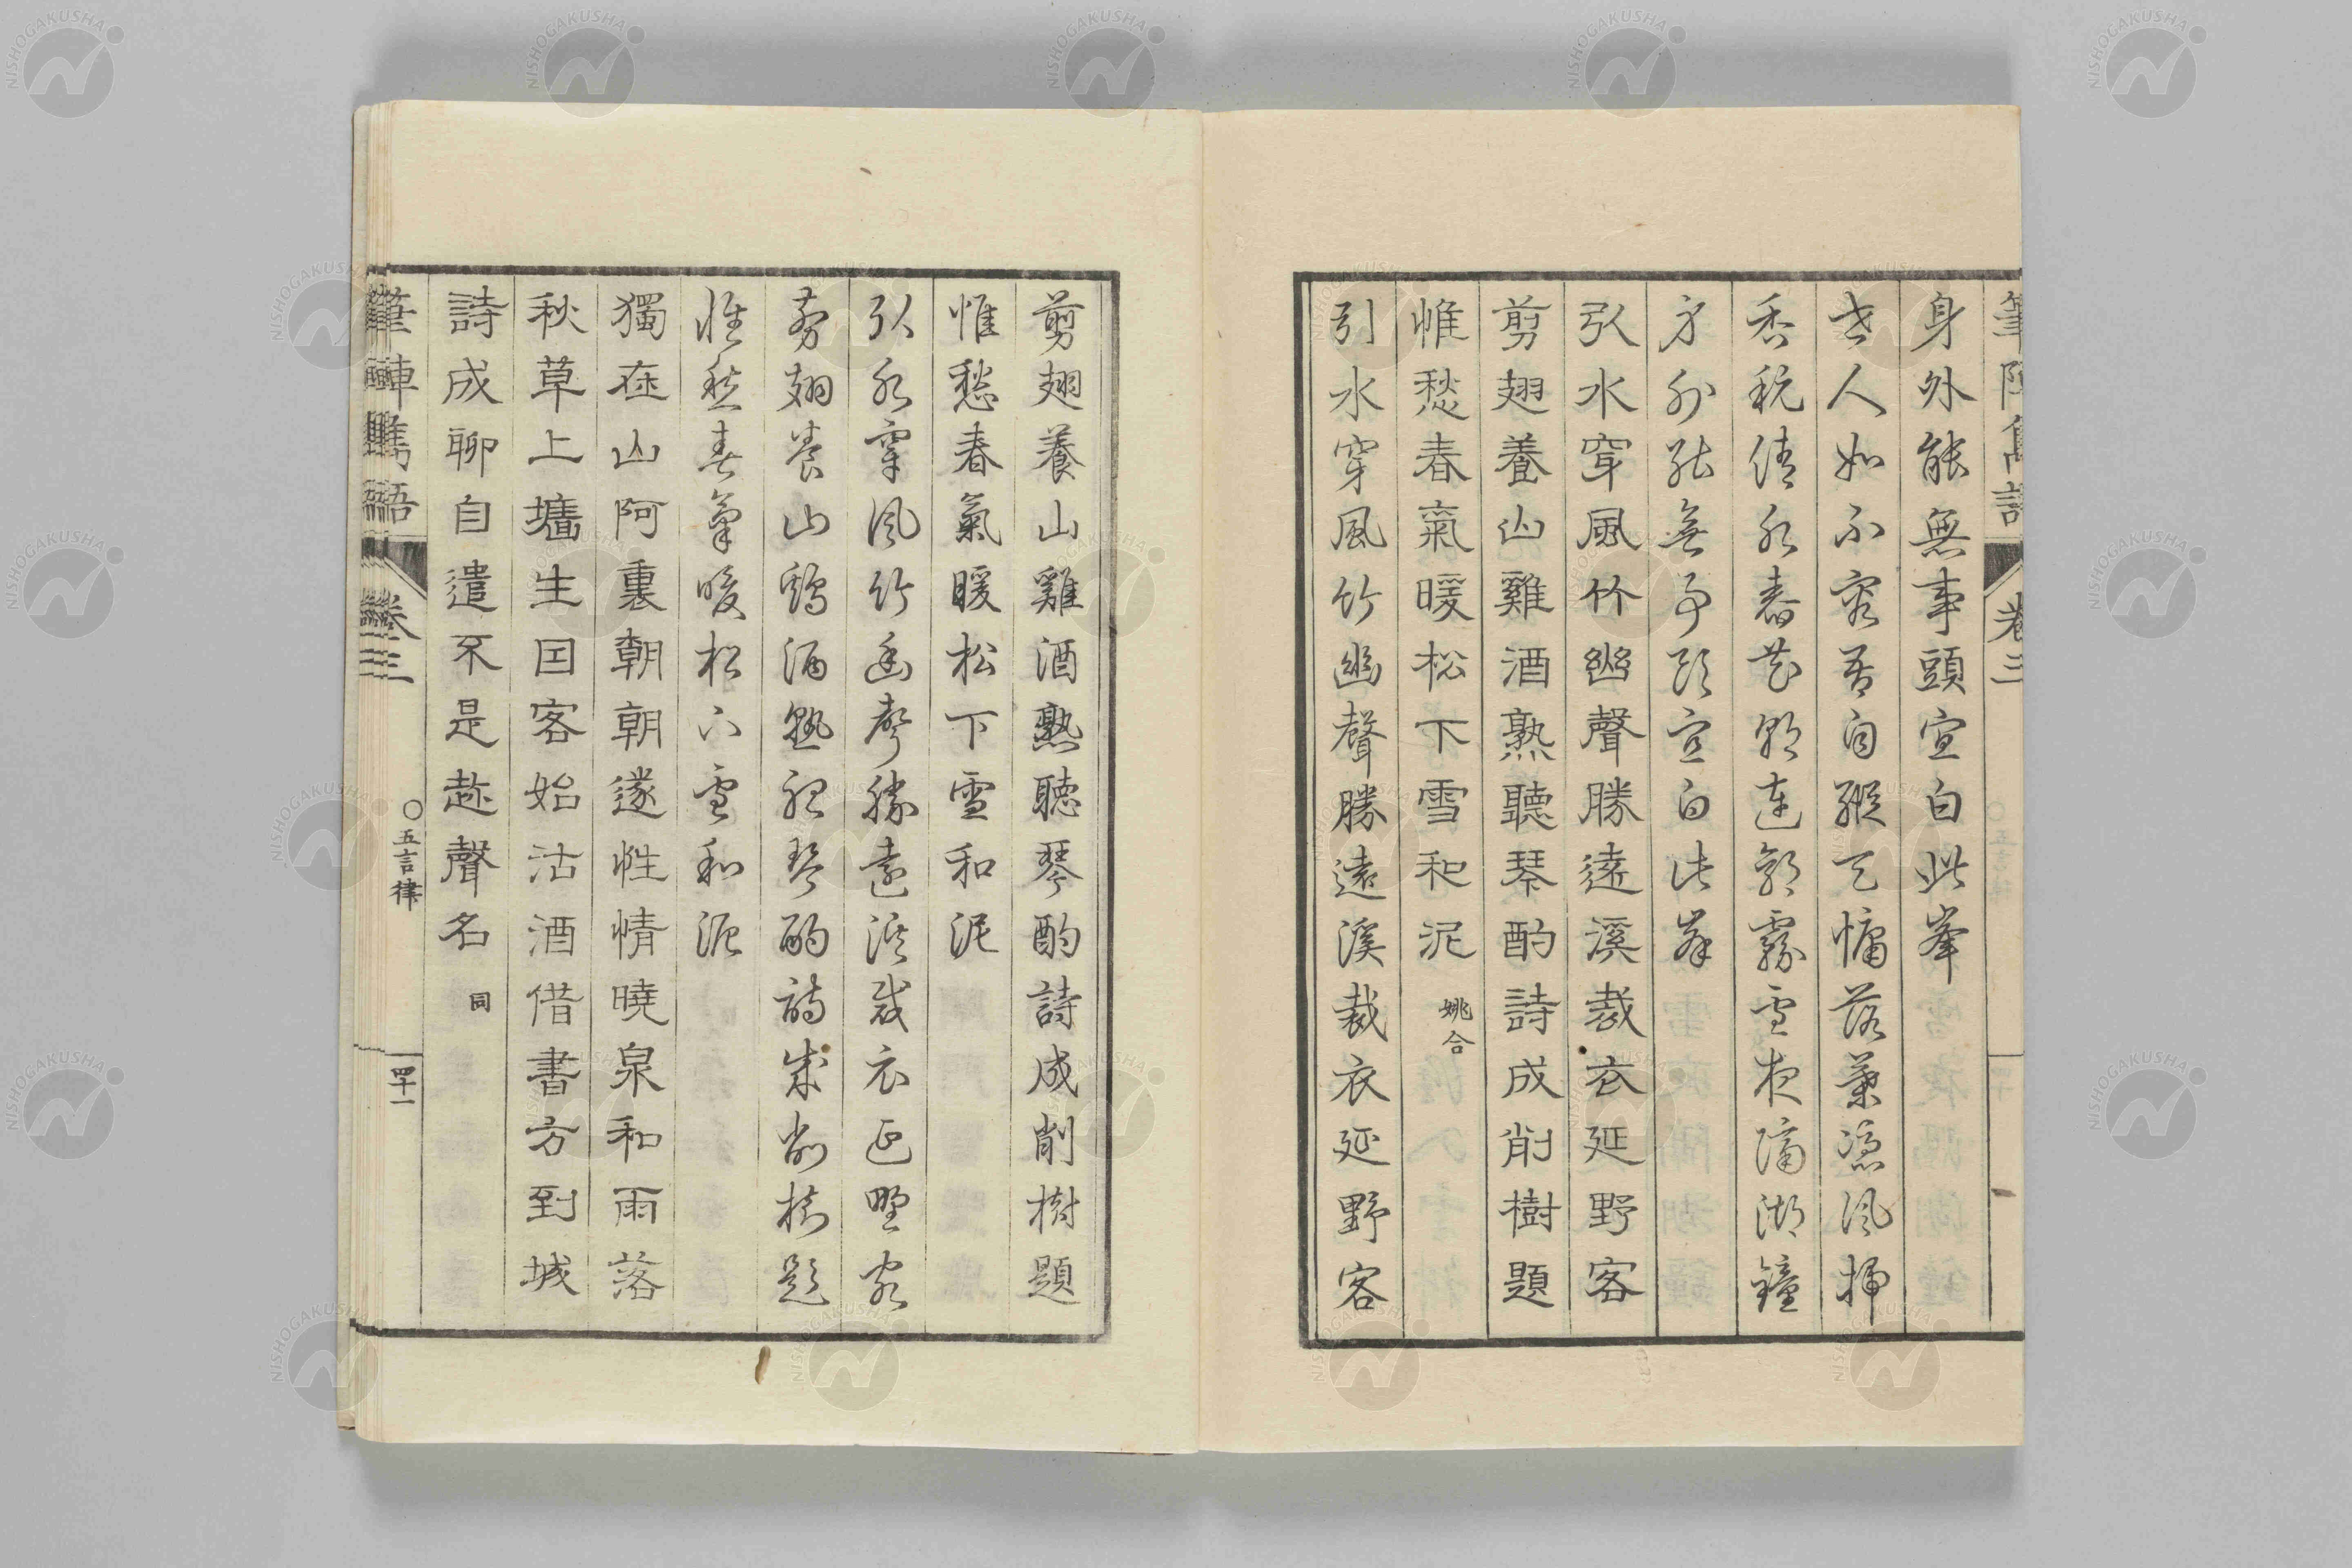 筆陣雋語 卷三
身外能無事頭宜白此峯
世人如不容吾自縱天慵落葉憑風掃
香秔倩水舂花朝連郭霧雪夜隔湖鐘
身外能無事頭宜白此峯
引水穿風竹幽聲勝遠溪裁衣延野客
剪翅養山雞酒熟聽琴酌詩成削樹題
惟愁春氣暖松下雪和泥 姚合
引水穿風竹幽聲勝遠溪裁衣延野客
剪翅養山雞酒熟聽琴酌詩成削樹題
惟愁春氣暖松下雪和泥
引水穿風竹幽聲勝遠溪裁衣延野客
剪翅養山雞酒熟聽琴酌詩成削樹題
惟愁春氣暖松下雪和泥
獨在山阿裏朝朝遂性情曉泉和雨落
秋草上墻生因客始沽酒借書方到城
詩成聊自遣不是趂聲名 同
筆陣雋語 卷三 ○五言律 四十一
NISHOGAKUSHA